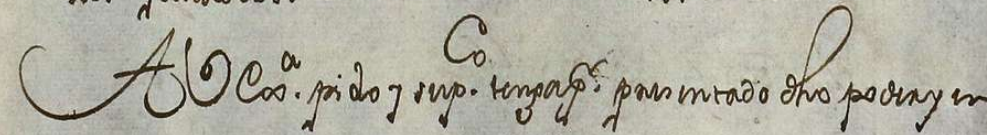 A V Exª. pido y sup.co tenga p.r presentado dho poder y en